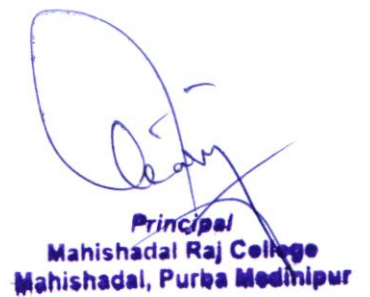 Principal
Mahishadal Raj College
Mahishadal, Purba Medinipur